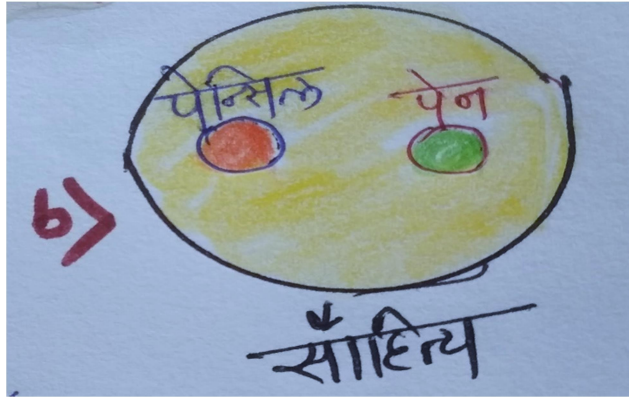 पेन्सिल पेन
b>
साहित्य